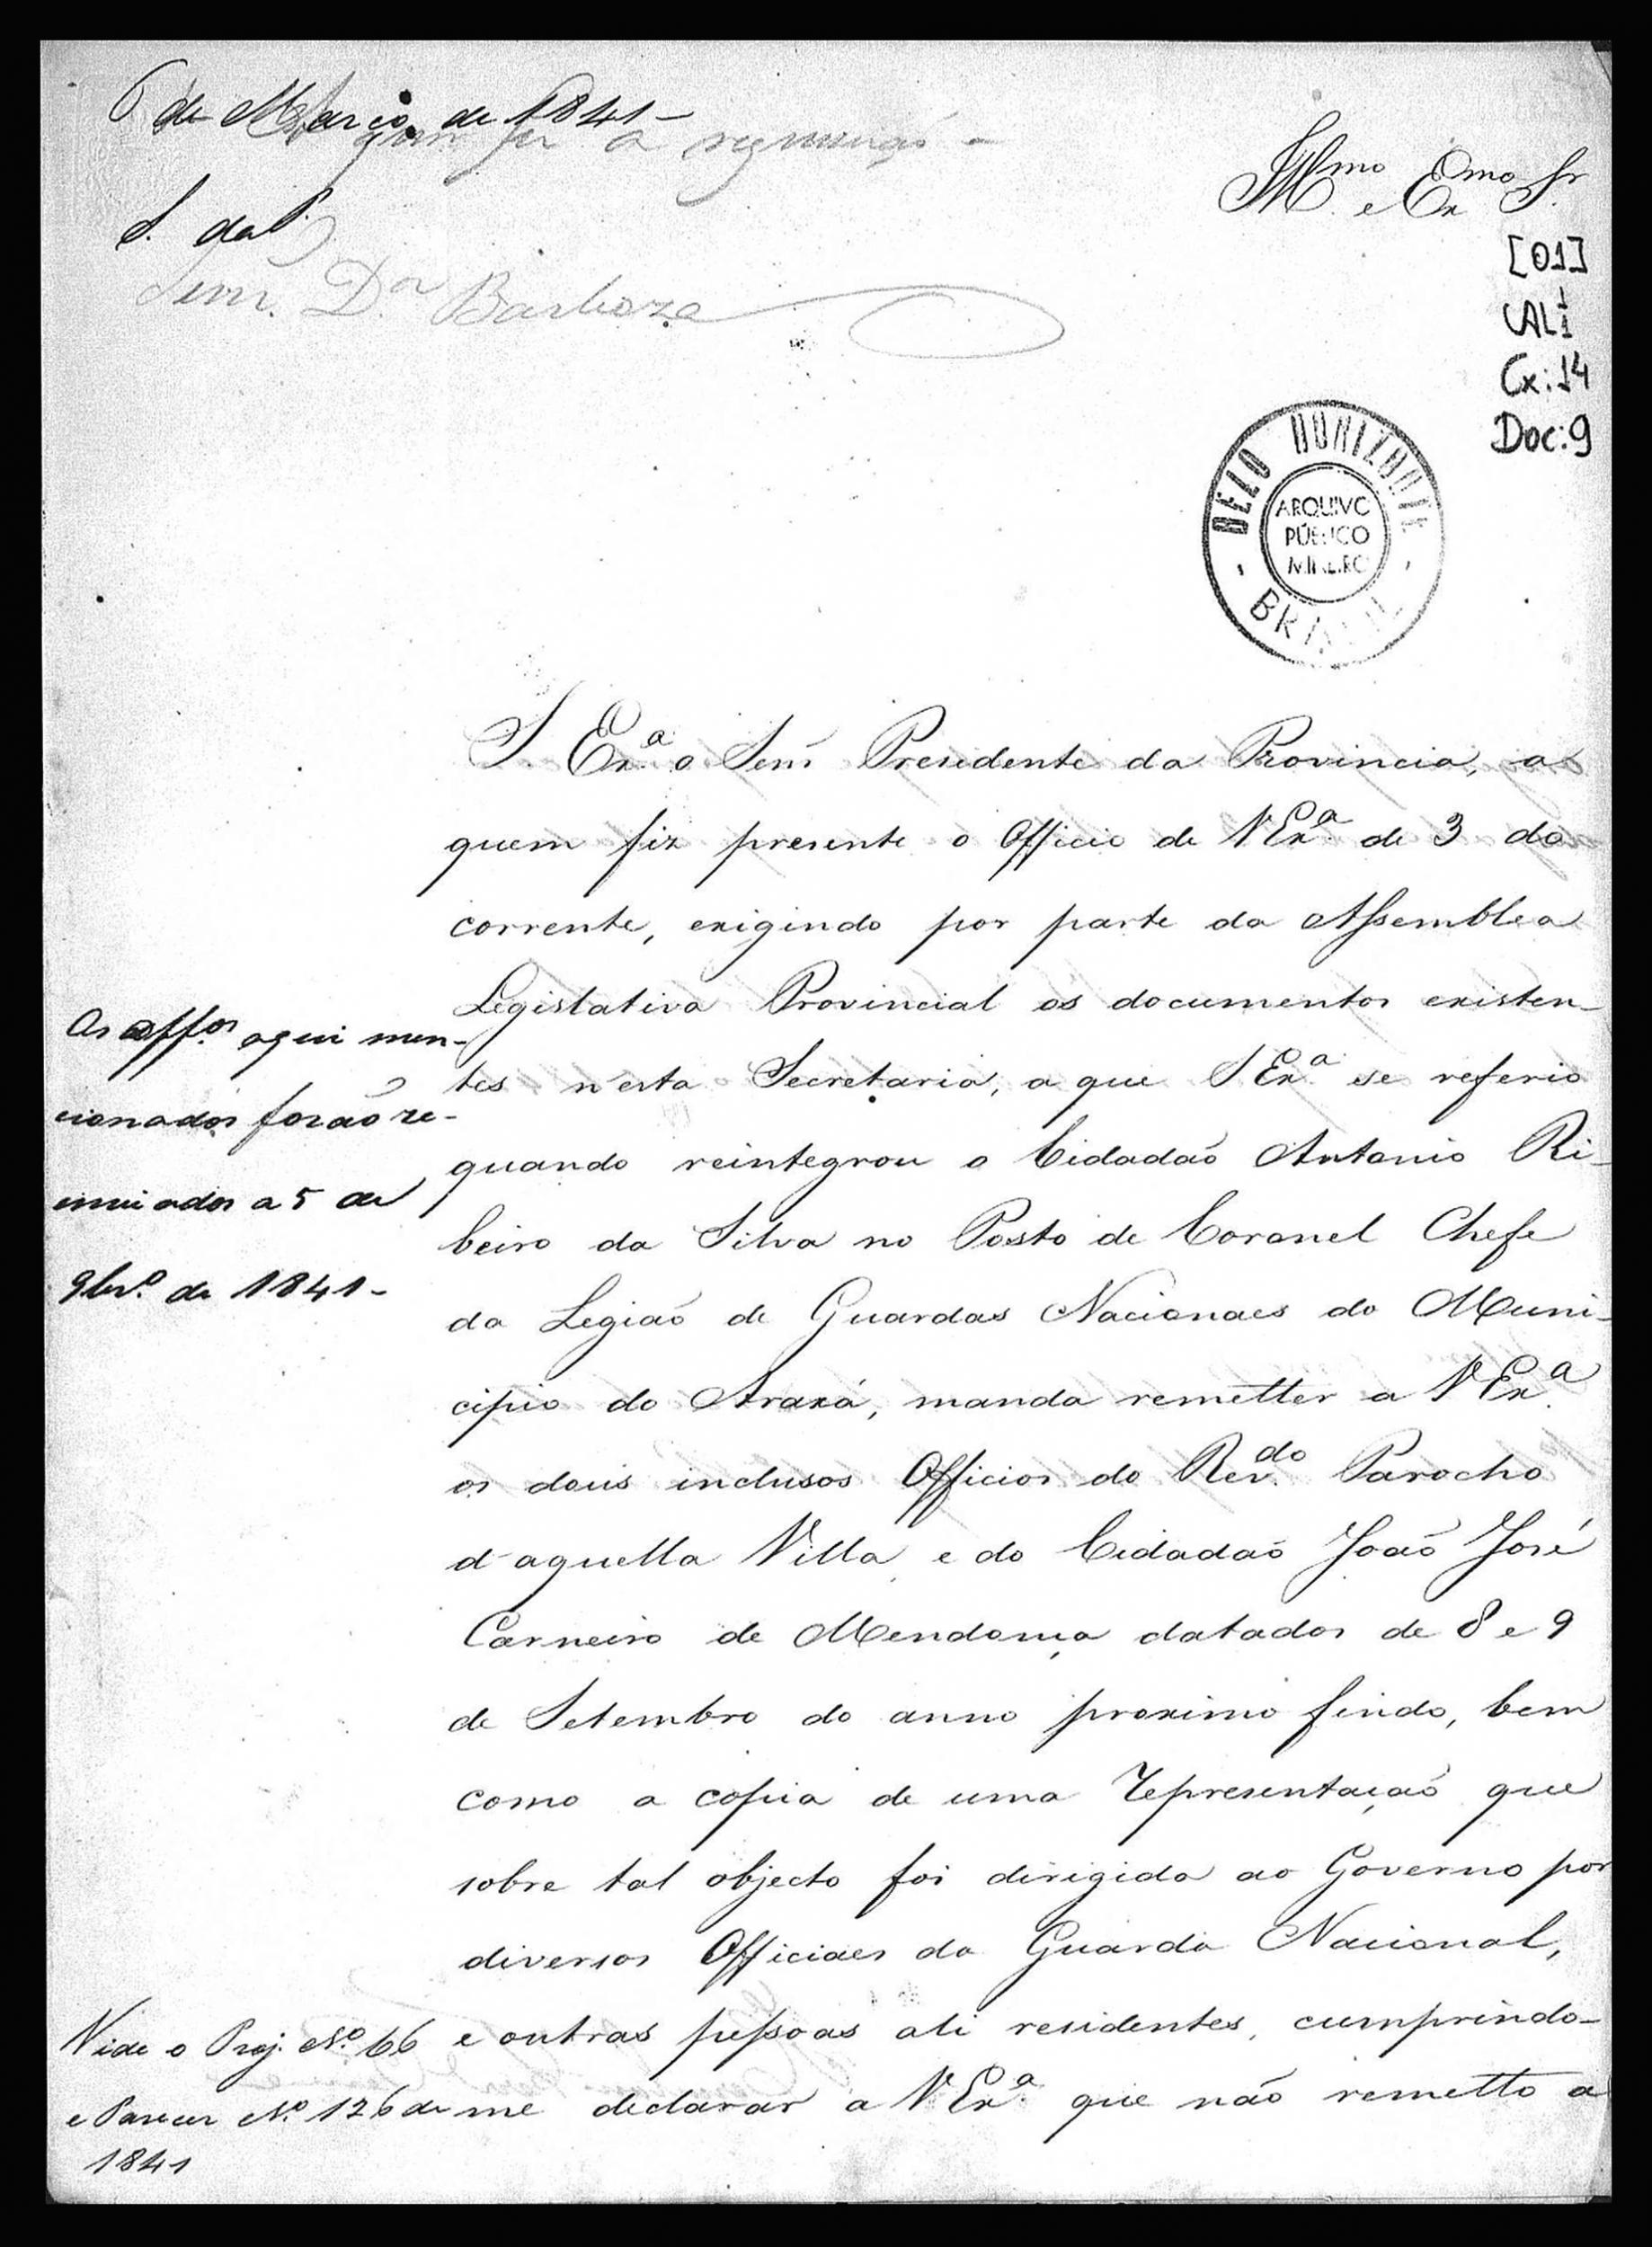 6 de Março de 1841 -
quem fez a
S. da P.
Senr. D.or Barboza
Ill.mo e Ex.mo Sr.
[01]
AL 1/1
Cx: 14
Doc: 9
BELO HORIZONTE
ARQUIVO
PÚBLICO
MINEIRO
BRASIL
S. Ex.a o Senr. Presidente da Provincia, a
quem fiz presente o Officio de V Ex.a de 3 do
corrente, exigindo por parte da Assemblea
Legislativa Provincial os documentos existen-
tes n'esta Secretaria, a que S Ex.a se referio
quando reintegrou o Cidadaõ Antonio Ri-
beiro da Silva no Posto de Coronel Chefe
da Legiaõ de Guardas Nacionaes do Muni-
cipio do Araxá, manda remetter a V Ex.a
os dous inclusos Officios do Rev.do Parocho
d'aquella Villa, e do Cidadaõ Joaõ José
Carneiro de Mendonça datados de 8 e 9
de Setembro do anno proximo findo, bem
como a copia de uma representaçaõ que
sobre tal objecto foi dirigida ao Governo por
diversos Officiaes da Guarda Nacional,
e outras pessoas ali residentes, cumprindo-
me declarar a V Ex.a que não remetto a
Os off.os aqui men-
cionados foraõ re-
enviados a 5 de
9br.o de 1841 -
Vide o Proj. N.o 66
e Parecer N.o 126 de
1841